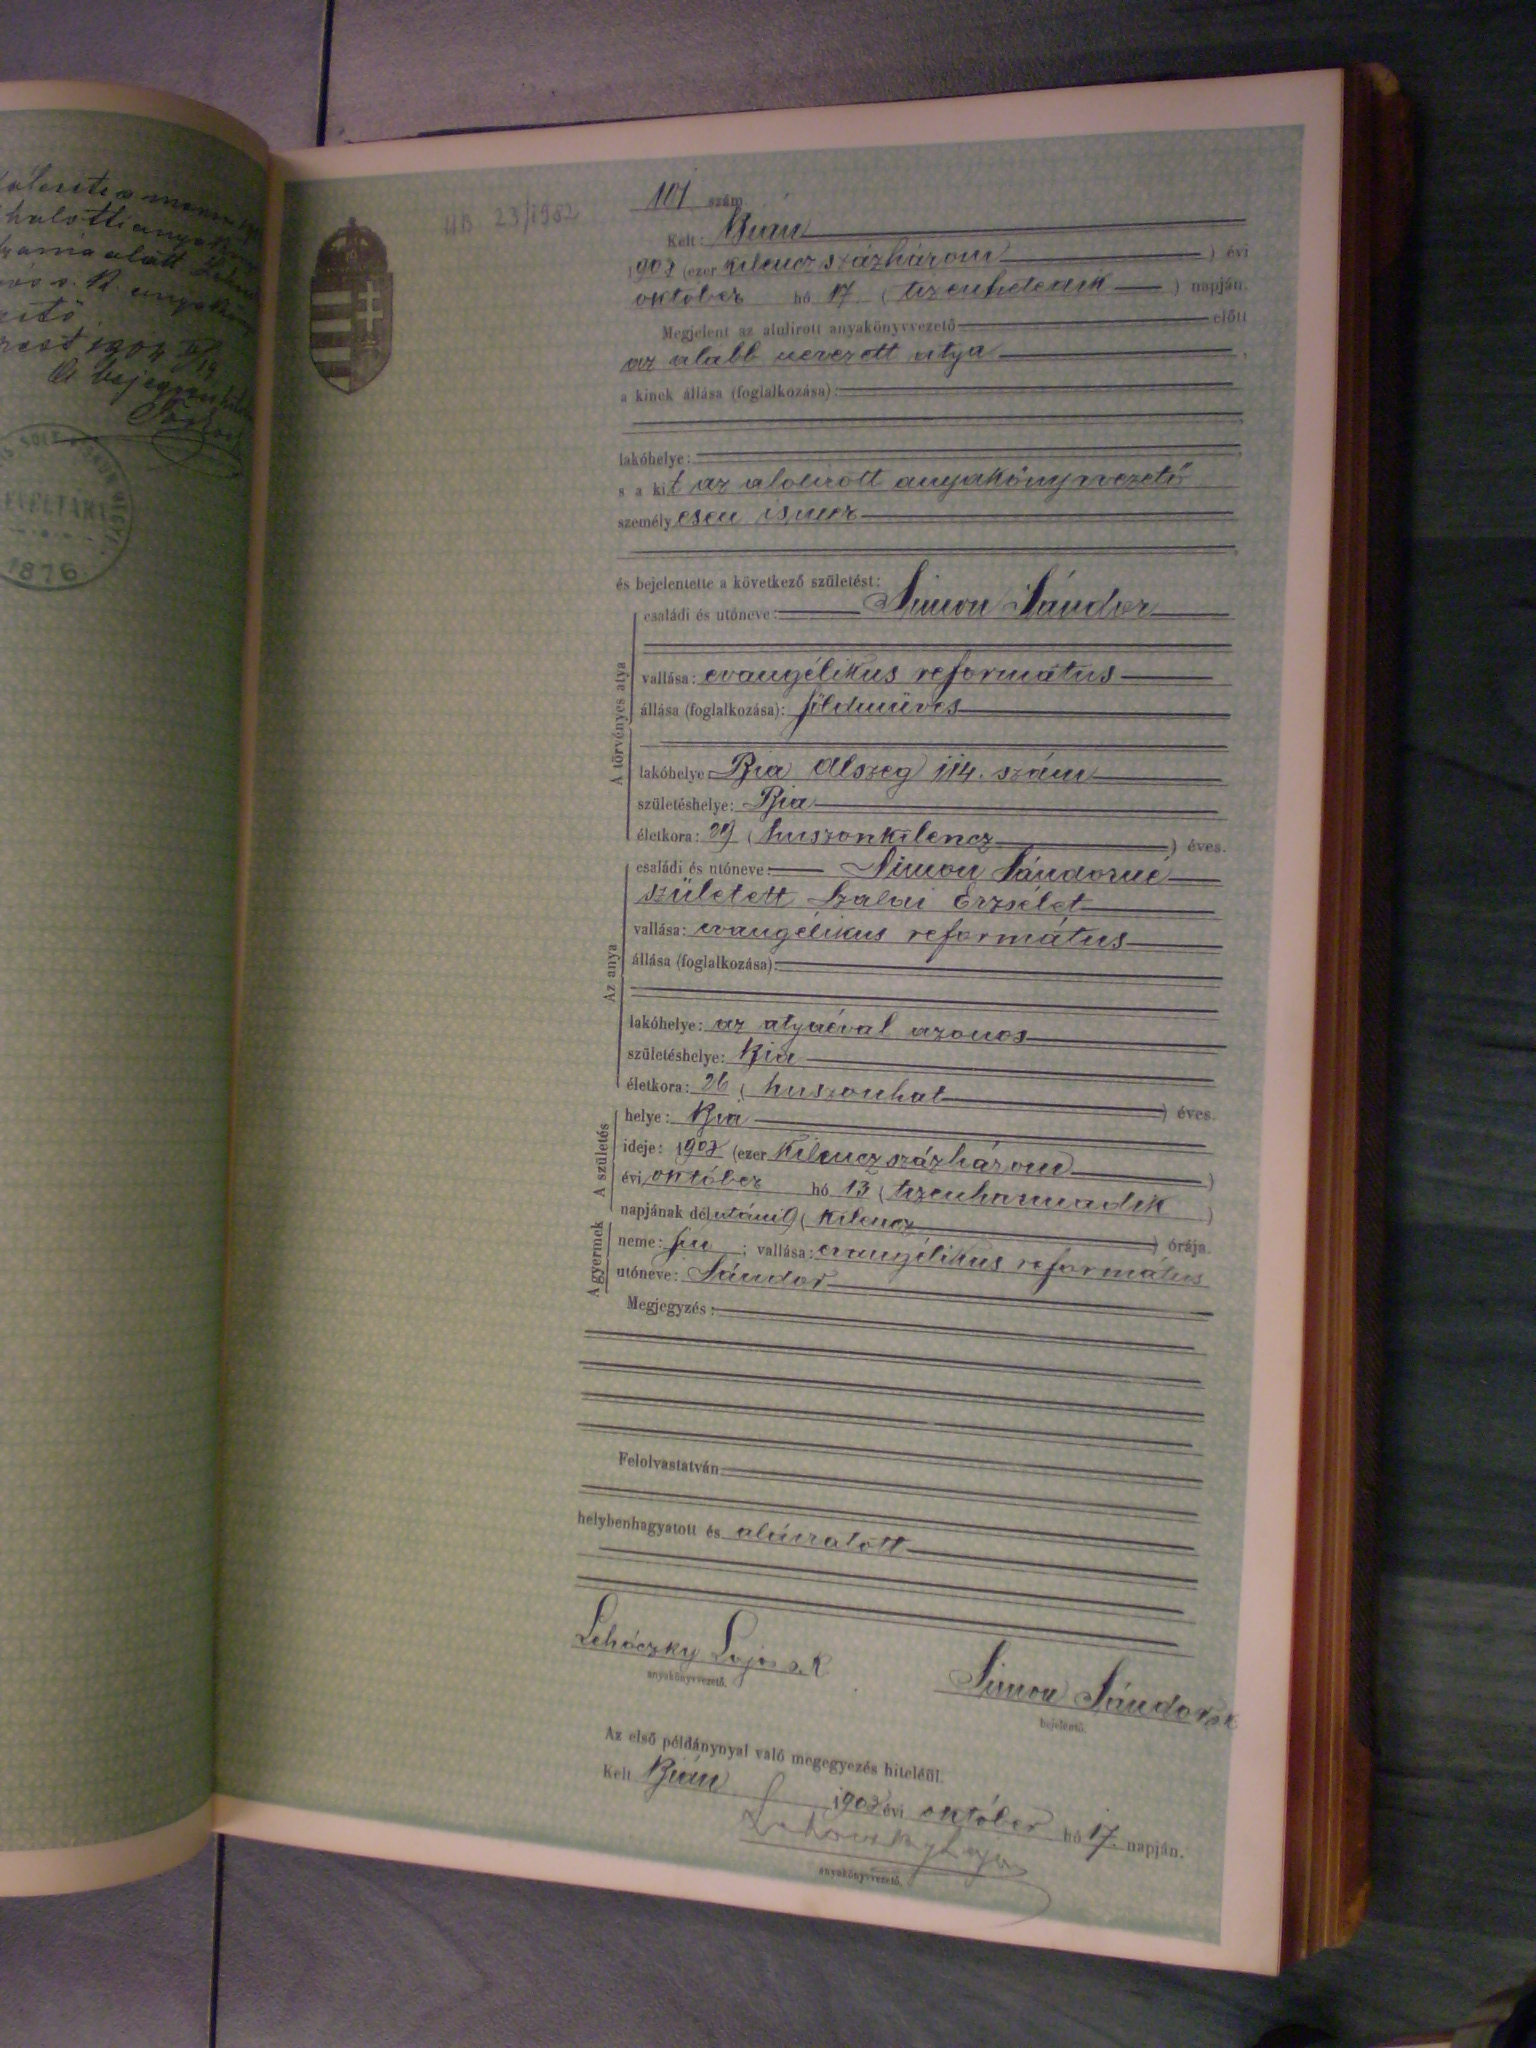 halotti anya
szama alatt
1904
A bejegyzés
1876
UB 23/1982
107 szám
Kelt: Bián
1903 (ezer kilencz százhárom) évi
október hó 17 (tizenhetedik) napján.
Megjelent az alulirott anyakönyvvezető előtt
az alább nevezett atya
a kinek állása (foglalkozása):
lakóhelye:
s a kit az alolirott anyakönyvvezető
személyesen ismer
és bejelentette a következő születést:
A törvényes atya
családi és utóneve: Simon Sándor
vallása: evangélikus református
állása (foglalkozása): földmüves
lakóhelye: Bia Alszeg 114. szám
születéshelye: Bia
életkora: 29 (huszonkilencz) éves.
Az anya
családi és utóneve: Simon Sándorné
született Szalai Erzsébet
vallása: evangélikus református
állása (foglalkozása):
lakóhelye: az atyáéval azonos
születéshelye: Bia
életkora: 26 (huszonhat) éves.
A születés
helye: Bia
ideje: 1903 (ezer kilenczszázhárom)
évi október hó 13 (tizenharmadik)
napjának délutáni 9 (kilencz) órája.
A gyermek
neme: fiú; vallása: evangélikus református
utóneve: Sándor
Megjegyzés:
Felolvastatván
helybenhagyatott és aláíratott
Lehóczky Lajos s. k.
anyakönyvvezető.
Simon Sándor s. k.
bejelentő.
Az első példánynyal való megegyezés hiteléül.
Kelt Bián 1903 évi október hó 17. napján.
Lehóczky Lajos
anyakönyvvezető.